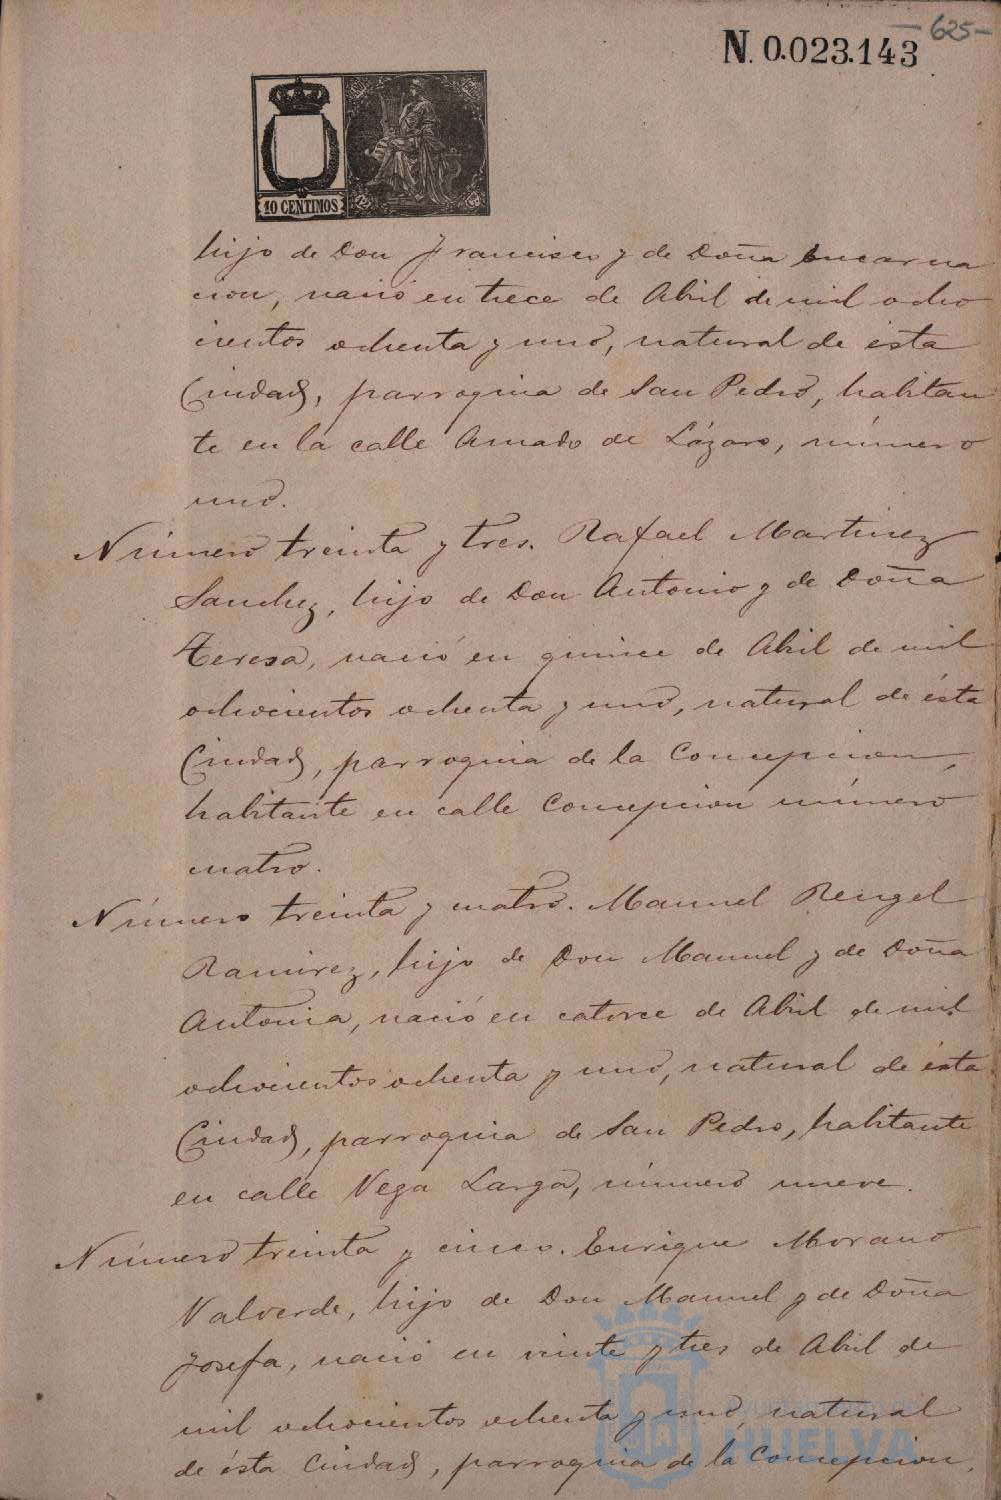 - 625 -
N. 0.023.143
10 CENTIMOS
hijo de Don Francisco y de Doña Encarna
cion, nació en trece de Abril de mil ocho
cientos ochenta y uno, natural de ésta
Ciudad, parroquia de San Pedro, habitan
te en la calle Amado de Lázaro, número
uno.
Número treinta y tres. Rafael Martinez
Sanchez, hijo de Don Antonio y de Doña
Teresa, nació en quince de Abril de mil
ochocientos ochenta y uno, natural de ésta
Ciudad, parroquia de la Concepcion,
habitante en calle Concepcion número
cuatro.
Número treinta y cuatro. Manuel Rengel
Ramirez, hijo de Don Manuel y de Doña
Antonia, nació en catorce de Abril de mil
ochocientos ochenta y uno, natural de ésta
Ciudad, parroquia de San Pedro, habitante
en calle Vega Larga, número nueve.
Número treinta y cinco. Enrique Morano
Valverde, hijo de Don Manuel y de Doña
Josefa, nació en veinte y tres de Abril de
mil ochocientos ochenta y uno, natural
de ésta Ciudad, parroquia de la Concepcion,
HUELVA